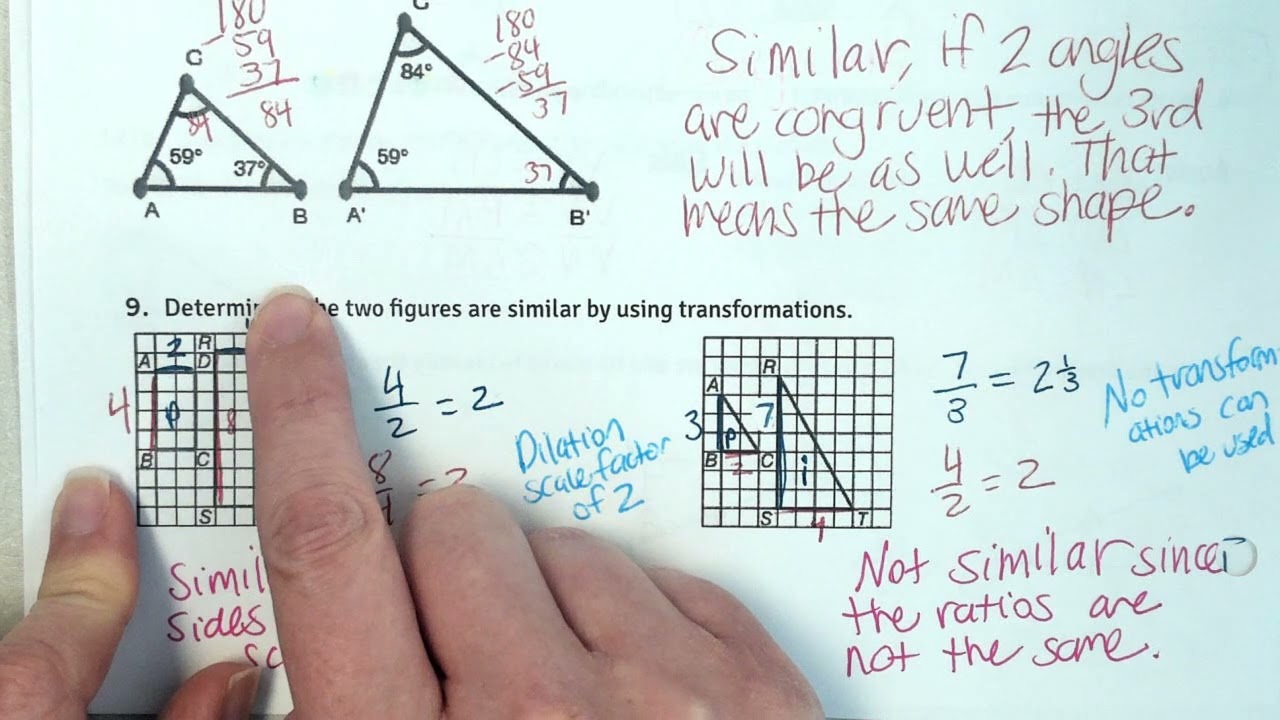 180
- 59
37
84
C
84
59°
37°
A
B
84°
59°
37
A'
B'
180
- 84
- 59
37
Similar, if 2 angles
are congruent, the 3rd
will be as well. That
means the same shape.
9. Determin he two figures are similar by using transformations.
A 2 R
D
4 P 8
B C
S
4/2 = 2
8/4 = 2
Dilation
scale factor
of 2
Simil
sides
sc
R
A
3 P 7
B 2 C
i
S 4 T
7/3 = 2 1/3
4/2 = 2
No transform-
ations can
be used
Not similar since
the ratios are
not the same.